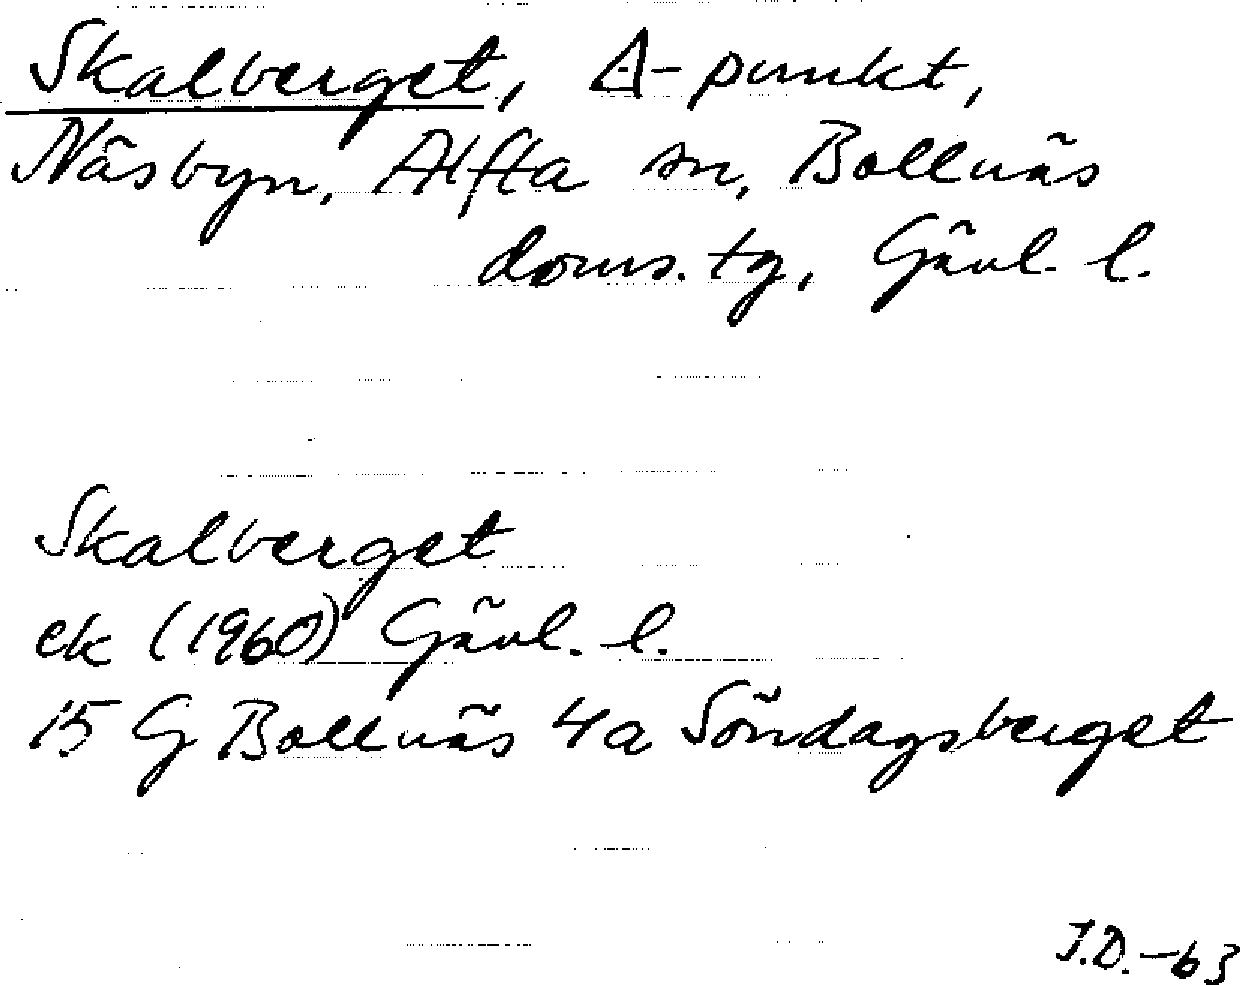 Skalberget, Δ-punkt,
Näsbyn, Alfta sn, Bollnäs
doms. tg, Gävl. l.
Skalberget
ek (1960) Gävl. l.
15 G Bollnäs 4a Söndagsberget
J.D.-63